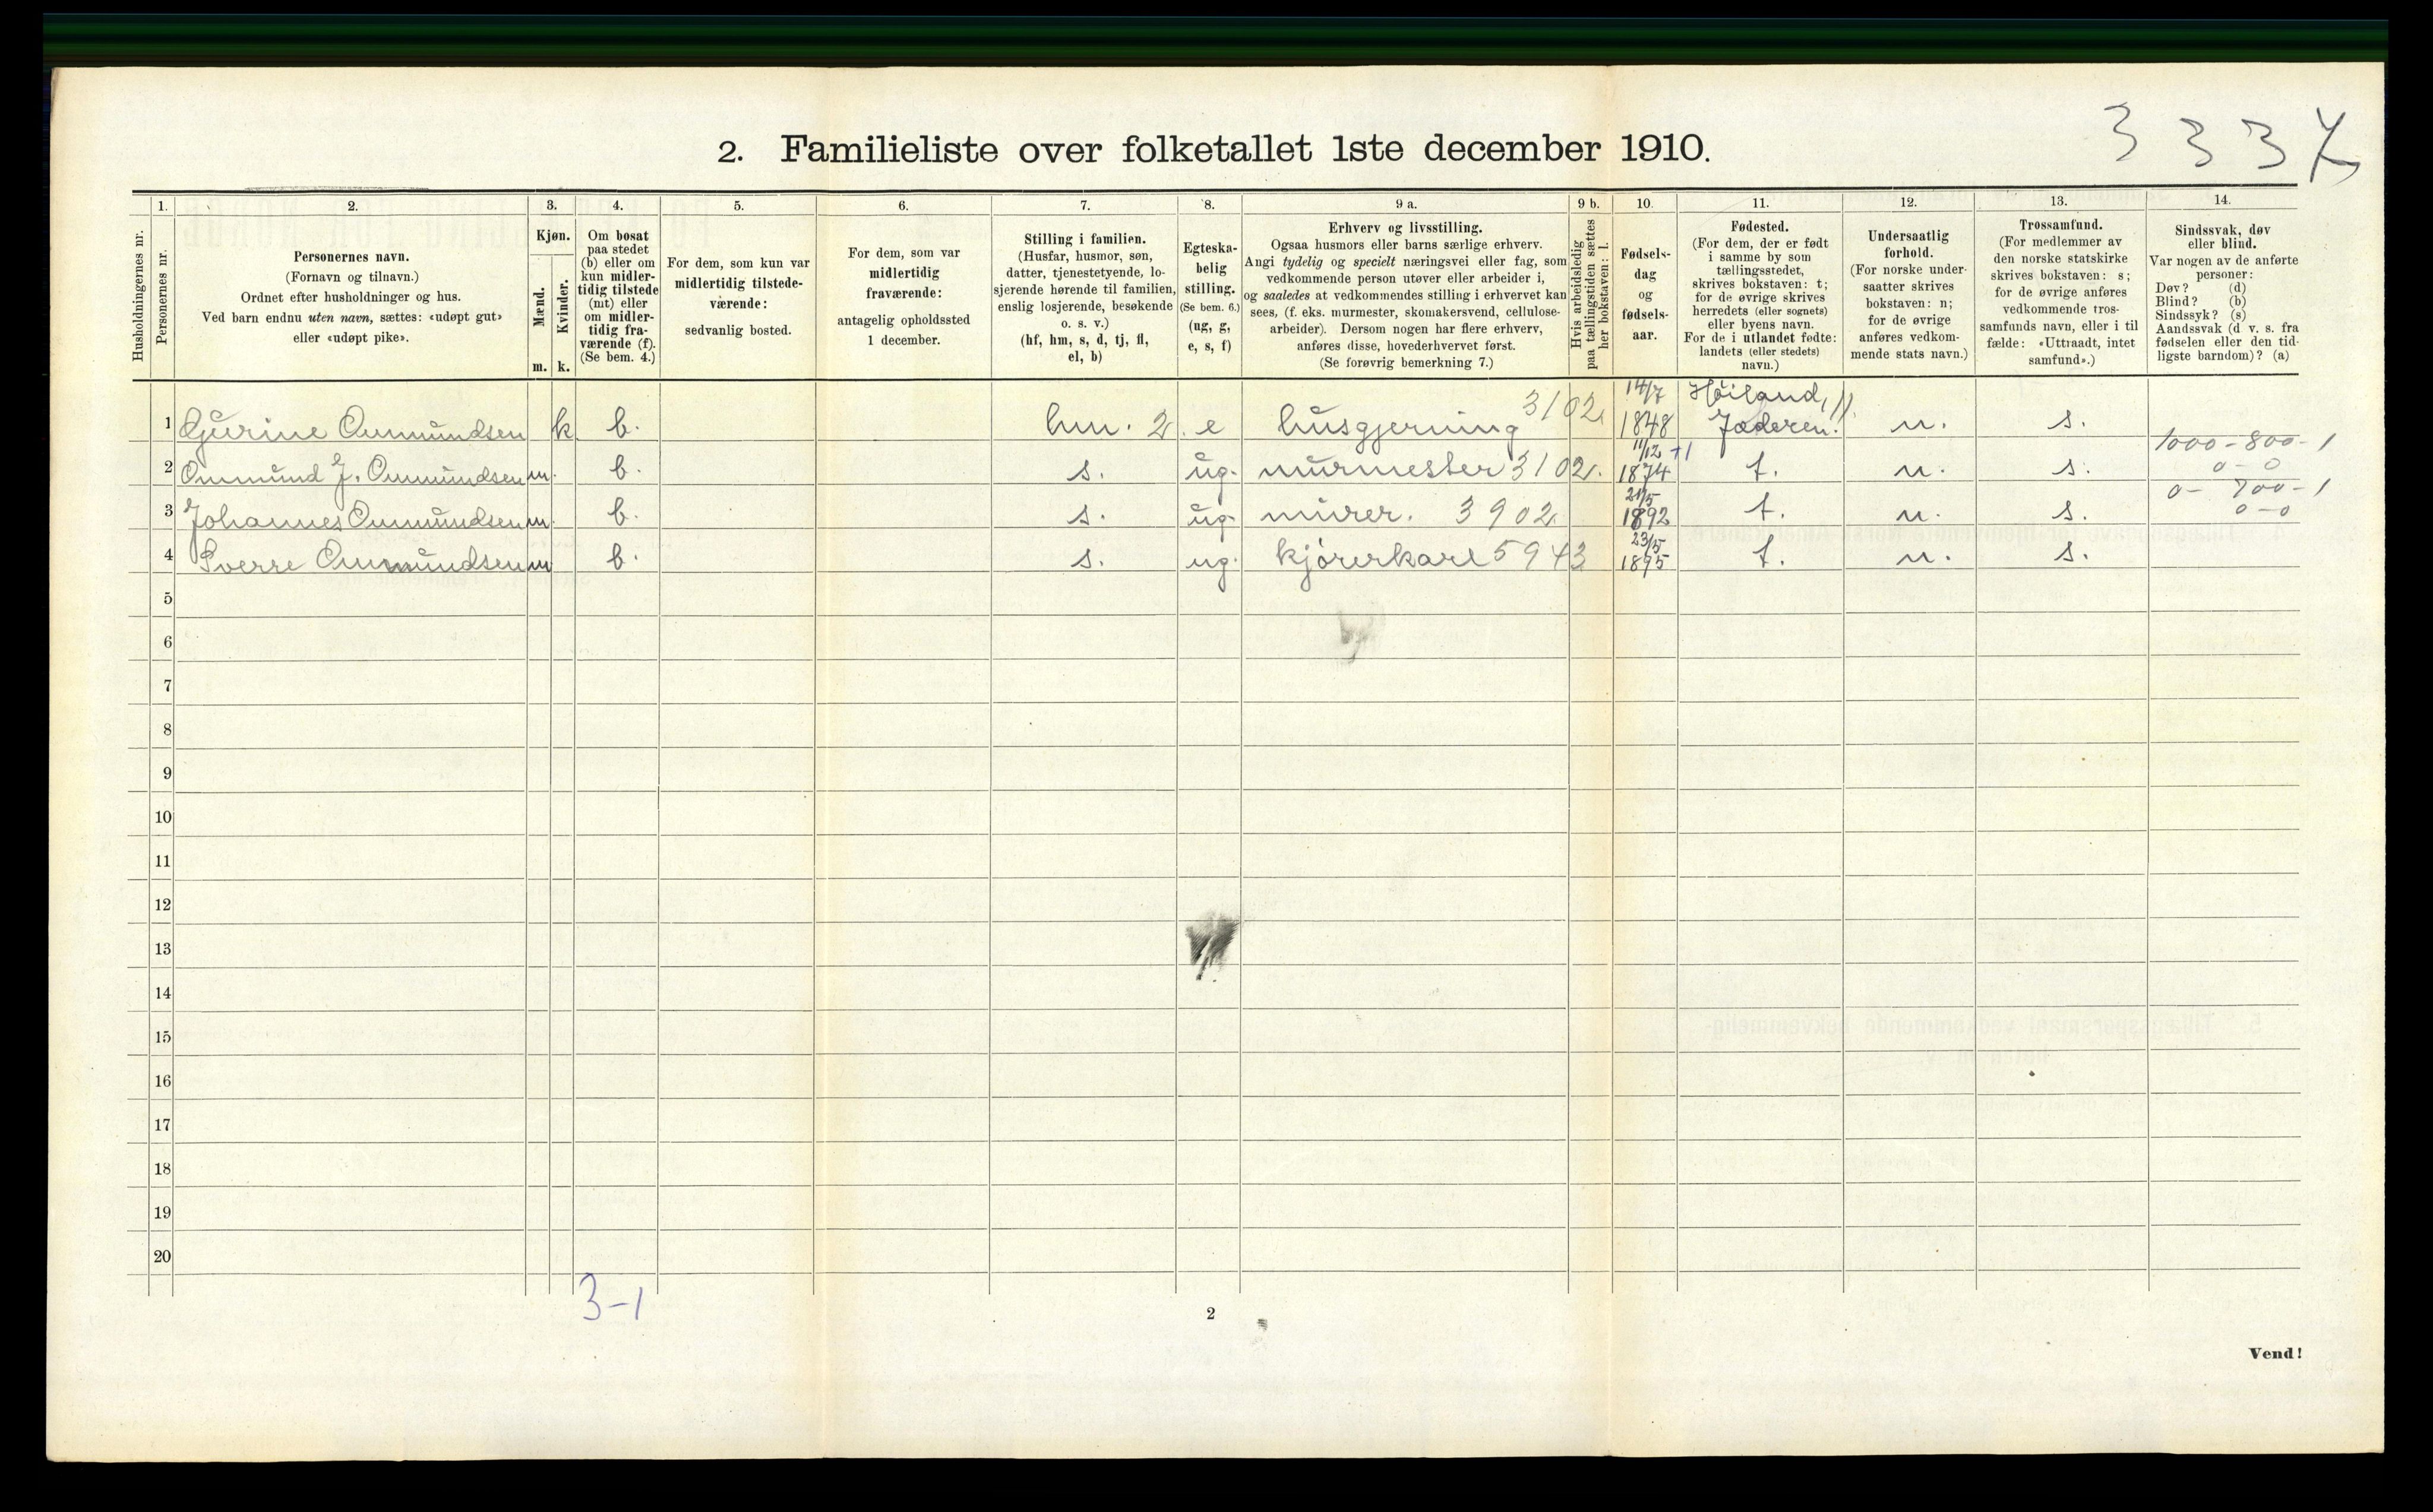 3 3 3 7
2. Familieliste over folketallet 1ste december 1910.
Husholdningernes nr.
1.
Personernes nr.
2.
Personernes navn.
(Fornavn og tilnavn.)
Ordnet efter husholdninger og hus.
Ved barn endnu uten navn, sættes: «udøpt gut»
eller «udøpt pike».
3.
Kjøn.
Mænd.
Kvinder.
m. k.
4.
Om bosat
paa stedet
(b) eller om
kun midler-
tidig tilstede
(mt) eller
om midler-
tidig fra-
værende (f).
(Se bem. 4.)
5.
For dem, som kun var
midlertidig tilstede-
værende:
sedvanlig bosted.
6.
For dem, som var
midlertidig
fraværende:
antagelig opholdssted
1 december.
7.
Stilling i familien.
(Husfar, husmor, søn,
datter, tjenestetyende, lo-
sjerende hørende til familien,
enslig losjerende, besøkende
o. s. v.)
(hf, hm, s, d, tj, fl,
el, b)
8.
Egteska-
belig
stilling.
(Se bem. 6.)
(ug, g,
e, s, f)
9 a.
Erhverv og livsstilling.
Ogsaa husmors eller barns særlige erhverv.
Angi tydelig og specielt næringsvei eller fag, som
vedkommende person utøver eller arbeider i,
og saaledes at vedkommendes stilling i erhvervet kan
sees, (f. eks. murmester, skomakersvend, cellulose-
arbeider). Dersom nogen har flere erhverv,
anføres disse, hovederhvervet først.
(Se forøvrig bemerkning 7.)
9 b.
Hvis arbeidsledig
paa tællingstiden sættes
her bokstaven: l.
10.
Fødsels-
dag
og
fødsels-
aar.
11.
Fødested.
(For dem, der er født
i samme by som
tællingsstedet,
skrives bokstaven: t;
for de øvrige skrives
herredets (eller sognets)
eller byens navn.
For de i utlandet fødte:
landets (eller stedets)
navn.)
12.
Undersaatlig
forhold.
(For norske under-
saatter skrives
bokstaven: n;
for de øvrige
anføres vedkom-
mende stats navn.)
13.
Trossamfund.
(For medlemmer av
den norske statskirke
skrives bokstaven: s;
for de øvrige anføres
vedkommende tros-
samfunds navn, eller i til
fælde: «Uttraadt, intet
samfund».)
14.
Sindssvak, døv
eller blind.
Var nogen av de anførte
personer:
Døv? (d)
Blind? (b)
Sindssyk? (s)
Aandssvak (d v. s. fra
fødselen eller den tid-
ligste barndom)? (a)
1 Gurine Ommundsen k b. hm. 2. e husgjerning 3102 14/7 1848 Høiland, Jæderen. n. s.
2 Ommund J. Ommundsen m. b. s. ug. murmester 3102. 11/12 +1 1874 t. n. s. 1000-800-1
0-0
3 Johannes Ommundsen m. b. s. ug. murer. 3902 21/5 1892 t. n. s. 0- 700-1
0-0
4 Sverre Ommundsen m b. s. ug. kjørerkarl 5943 23/5 1895 t. n. s.
5
6
7
8
9
10
11
12
13
14
15
16
17
18
19
20
3-1
2
Vend!